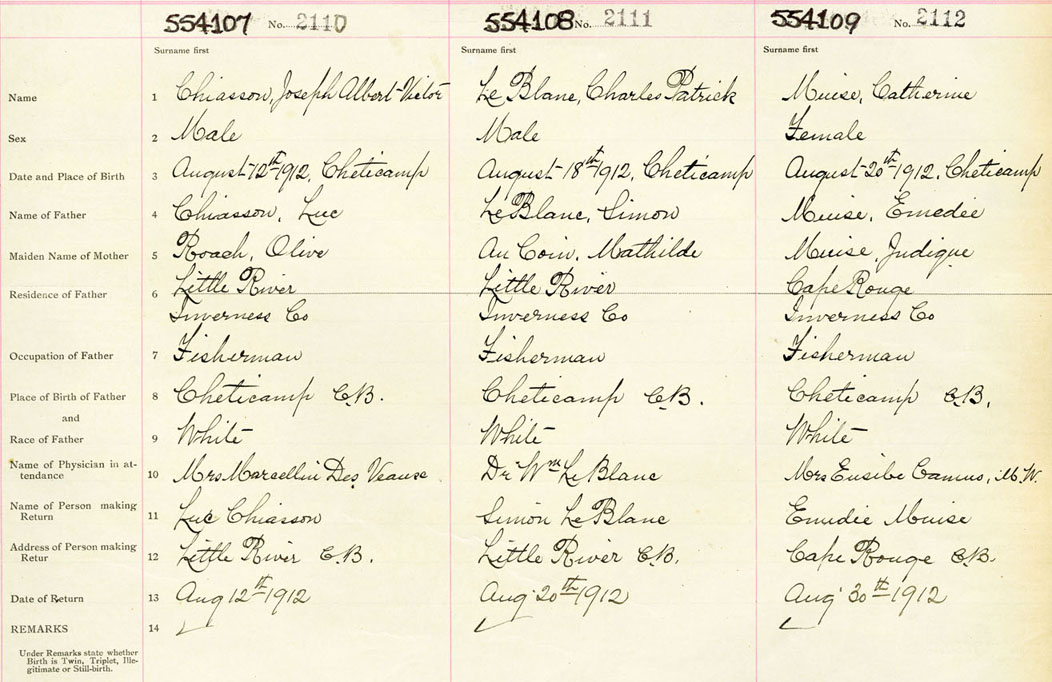 554107 No. 2110 554108 No. 2111 554109 No. 2112
Surname first Surname first Surname first
Name 1 Chiasson, Joseph Albert-Victor Le Blanc, Charles Patrick Muise, Catherine
Sex 2 Male Male Female
Date and Place of Birth 3 August-12th-1912, Cheticamp August-18th-1912, Cheticamp August-20th-1912, Cheticamp
Name of Father 4 Chiasson, Luc Le Blanc, Simon Muise, Emedée
Maiden Name of Mother 5 Roach, Olive Au Coin, Mathilde Muise, Judique
Residence of Father 6 Little River Little River Cape Rouge
Inverness Co Inverness Co Inverness Co
Occupation of Father 7 Fisherman Fisherman Fisherman
Place of Birth of Father 8 Cheticamp C.B. Cheticamp C.B. Cheticamp C.B.
and
Race of Father 9 White White White
Name of Physician in at-
tendance 10 Mrs Marcellin Des Veause Dr Wm Le Blanc Mrs Eusibe Camus, M.W.
Name of Person making
Return 11 Luc Chiasson Simon Le Blanc Emedie Muise
Address of Person making
Retur 12 Little River C.B. Little River C.B. Cape Rouge C.B.
Date of Return 13 Aug 12th 1912 Aug 20th 1912 Aug 30th 1912
REMARKS 14
Under Remarks state whether
Birth is Twin, Triplet, Ille-
gitimate or Still-birth.